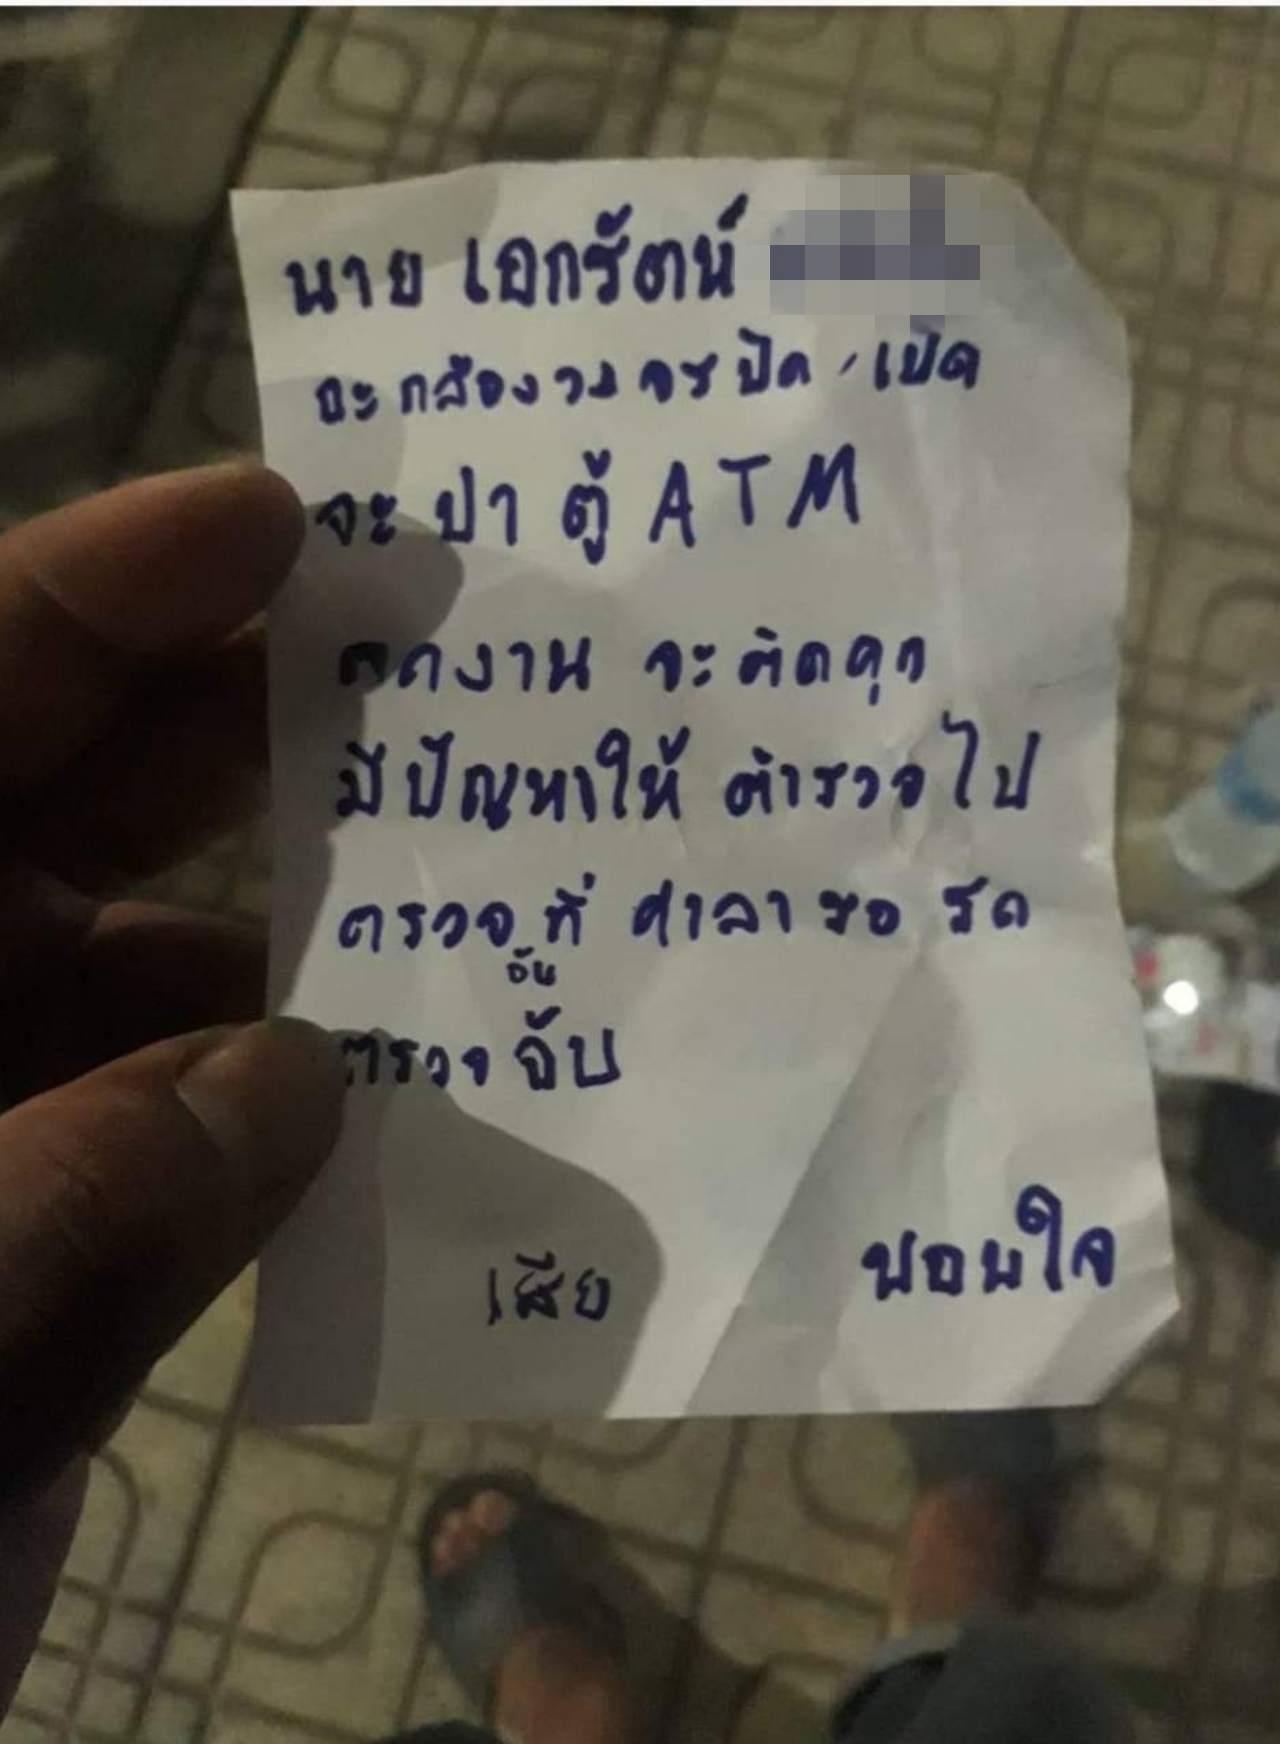 นาย เอกรัตน์
จะ กล้องวงจรปิด / เปิด
จะ ปา ตู้ ATM
ตกงาน จะ ติดคุก
มีปัญหาให้ ตำรวจไป
ตรวจ ที่ ศาลา รอ รถ
จับ
ตรวจ จับ
เสีย
นอนใจ